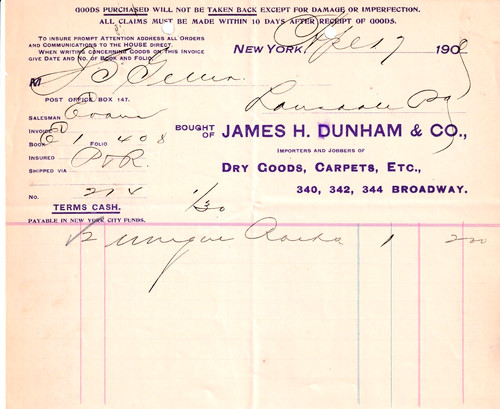 GOODS PURCHASED WILL NOT BE TAKEN BACK EXCEPT FOR DAMAGE OR IMPERFECTION.
ALL CLAIMS MUST BE MADE WITHIN 10 DAYS AFTER RECEIPT OF GOODS.
TO INSURE PROMPT ATTENTION ADDRESS ALL ORDERS
AND COMMUNICATIONS TO THE HOUSE DIRECT.
WHEN WRITING CONCERNING GOODS ON THIS INVOICE
GIVE DATE AND NO. OF BOOK AND FOLIO.
NEW YORK, 17 190
M
POST OFFICE BOX 147.
Lansdale Pa
SALESMAN Evans
INVOICE
BOOK 1 FOLIO 408
BOUGHT OF JAMES H. DUNHAM & CO.,
INSURED
SHIPPED VIA P&R
IMPORTERS AND JOBBERS OF
DRY GOODS, CARPETS, ETC.,
NO. 274
340, 342, 344 BROADWAY.
TERMS CASH. 1/30
PAYABLE IN NEW YORK CITY FUNDS.
12 unique 1 200